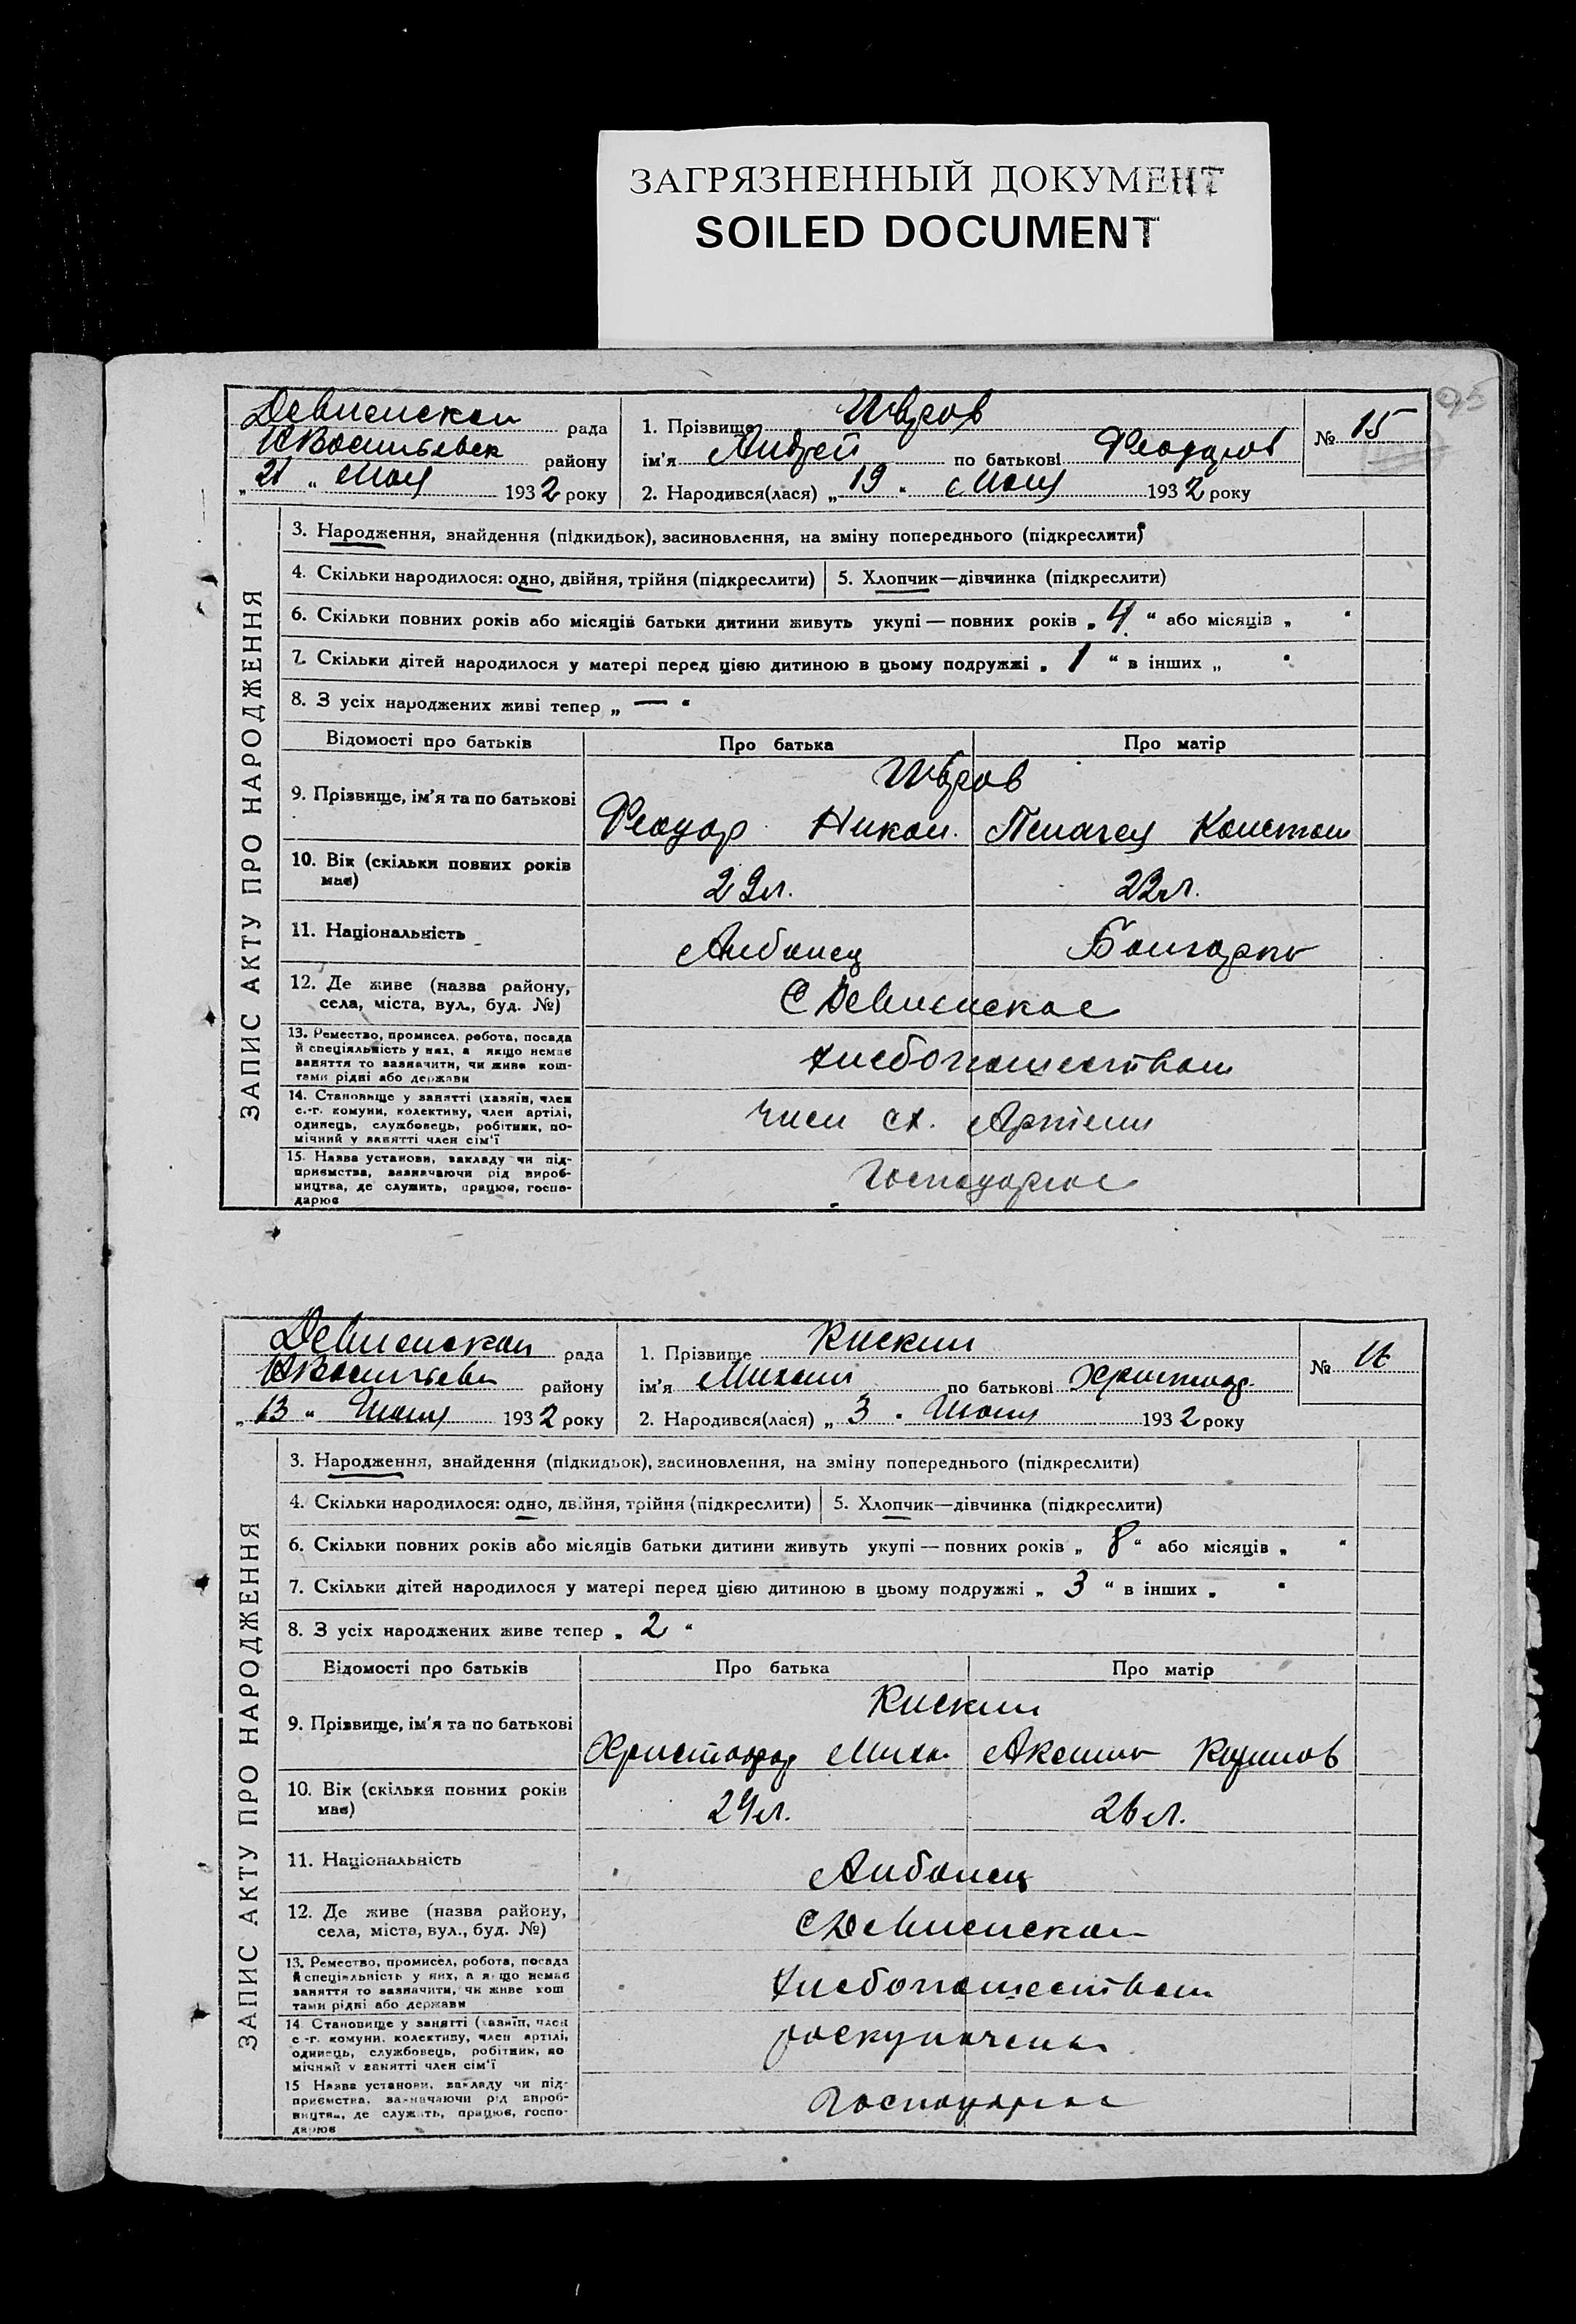 ЗАГРЯЗНЕННЫЙ ДОКУМЕНТ
SOILED DOCUMENT
95
Девненская рада
Н Васильевск району
„ 21 “ Мая 1932 року
1. Прізвище
ім'я Андрей по батькові Феодоров
2. Народився(лася) „ 19 “ Мая 1932 року
№ 15
ЗАПИС АКТУ ПРО НАРОДЖЕННЯ
3. Народження, знайдення (підкидьок), засиновлення, на зміну попереднього (підкреслити)
4. Скільки народилося: одно, двійня, трійня (підкреслити)
5. Хлопчик—дівчинка (підкреслити)
6. Скільки повних років або місяців батьки дитини живуть укупі — повних років „ 4 “ або місяців „ “
7. Скільки дітей народилося у матері перед цією дитиною в цьому подружжі „ 1 “ в інших „ “
8. З усіх народжених живі тепер „ — “
Відомості про батьків
Про батька
Про матір
9. Прізвище, ім'я та по батькові
Феодор Никол. Пелагея Констан
10. Вік (скільки повних років
має)
22л.
11. Національність
Албанец
Болгарка
12. Де живе (назва району,
села, міста, вул., буд. №)
С Девненское
13. Ремество, промисел, робота, посада
й спеціяльність у них, а якщо немає
заняття то зазначити, чи живе кош-
тами рідні або держави
Хлебопашеством
14. Становище у занятті (хазяїн, член
с.-г. комуни, колективу, член артілі,
одинець, службовець, робітник, по-
мічний у занятті член сім'ї
член сх. Артели
15. Назва установи, закладу чи під-
приємства, зазначаючи рід вироб-
ництва, де служить, працює, госпо-
дарює
Девненская рада
Н Васильевс району
„ 13 “ 1932 року
1. Прізвище Кискин
ім'я Михаил по батькові Христофор.
2. Народився(лася) „ 3 “ 1932 року
№
ЗАПИС АКТУ ПРО НАРОДЖЕННЯ
3. Народження, знайдення (підкидьок), засиновлення, на зміну попереднього (підкреслити)
4. Скільки народилося: одно, двійня, трійня (підкреслити)
5. Хлопчик—дівчинка (підкреслити)
6. Скільки повних років або місяців батьки дитини живуть укупі — повних років „ 8 “ або місяців „ “
7. Скільки дітей народилося у матері перед цією дитиною в цьому подружжі „ 3 “ в інших „ “
8. З усіх народжених живе тепер „ 2 “
Відомості про батьків
Про батька
Про матір
9. Прізвище, ім'я та по батькові
Кискин
Христофор Миха.
10. Вік (скільки повних років
має)
26 л.
11. Національність
Албанец
12. Де живе (назва району,
села, міста, вул., буд. №)
С Девненское
13. Ремество, промисел, робота, посада
й спеціяльність у них, а якщо немає
заняття то зазначити, чи живе кош
тами рідні або держави
Хлебопашеством
14. Становище у занятті (хазяїн, член
с-г. комуни, колективу, член артілі,
одинець, службовець, робітник, по
мічний у занятті член сім'ї
15 Назва установи, закладу чи під-
приємства, зазначаючи рід вироб-
ництва, де служить, працює, госпо-
дарює